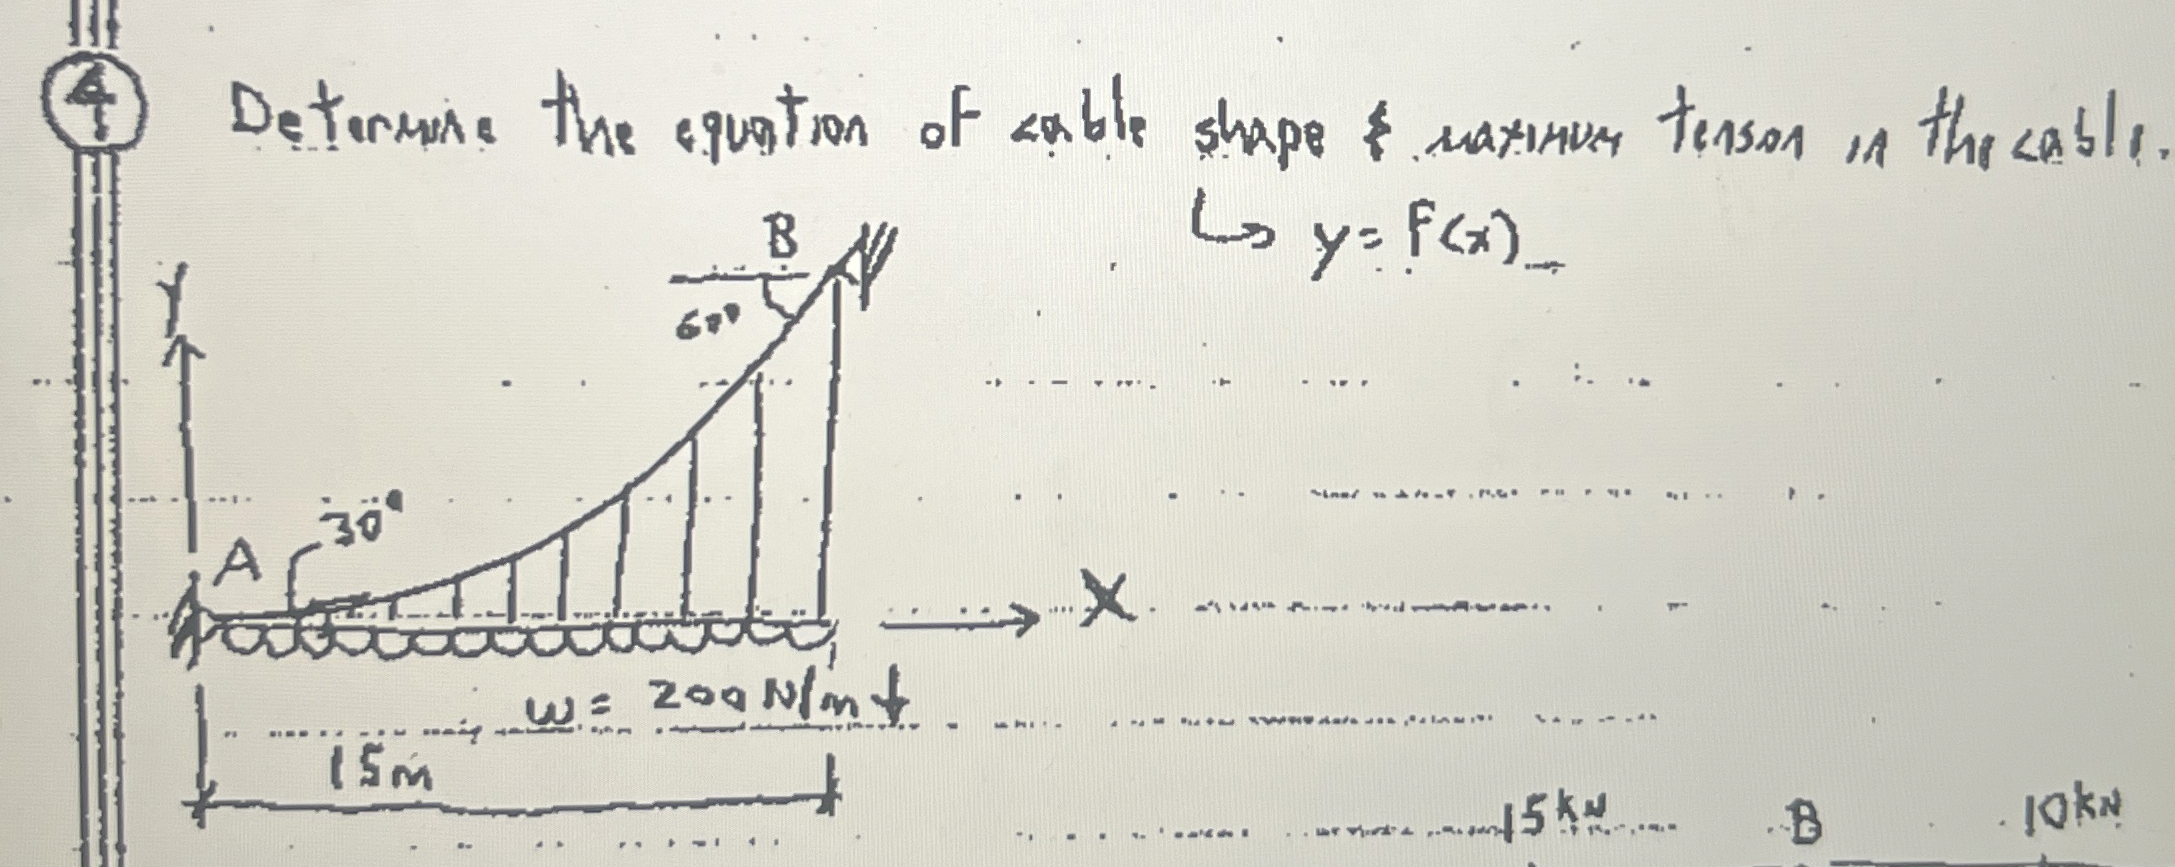 4 Determine the equation of cable shape & maximum tenson in the cable.
↳ y = F(x)
B
60°
Y
30°
A
X
w = 200 N/m ↓
15m
15kN B 10kN